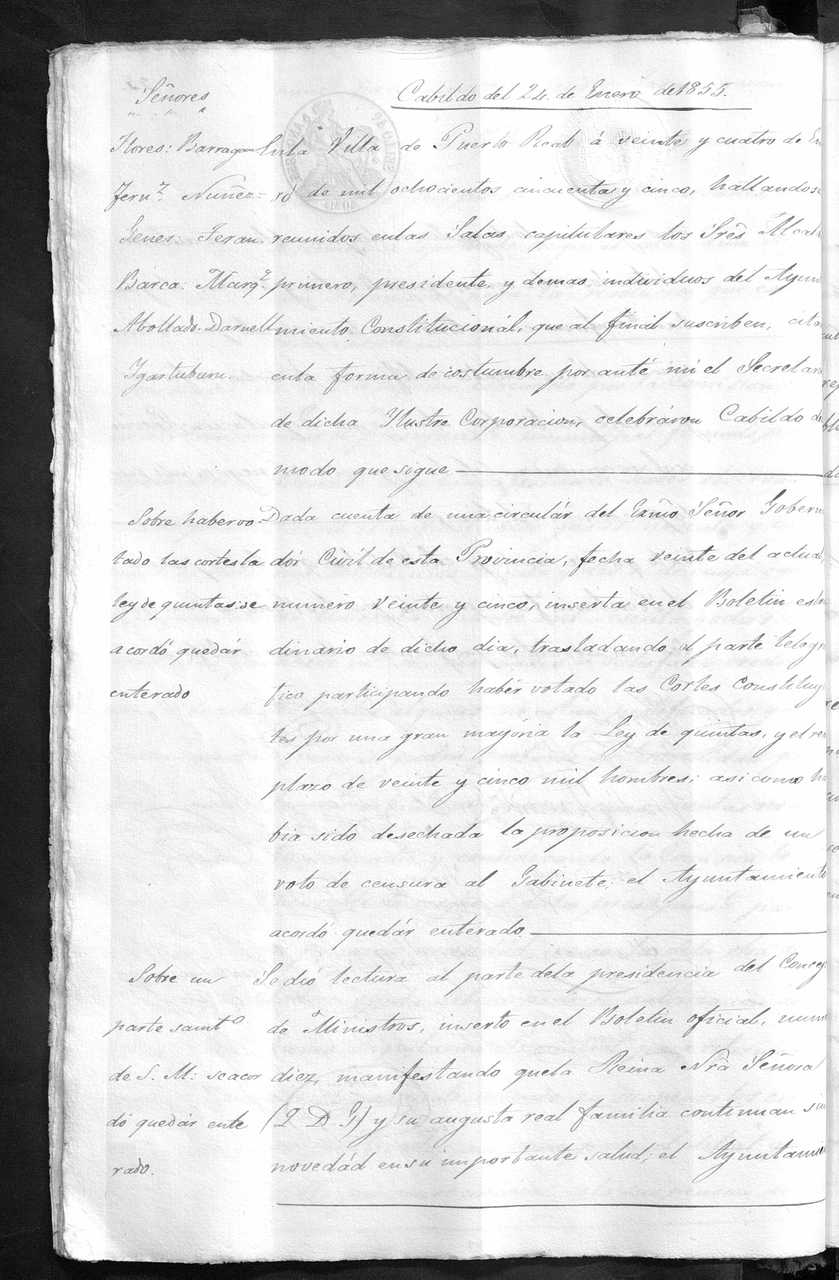 Señores
Cabildo del 24. de Enero de 1855.
Flores: Barragan
Fern.z Nuñez =
Genes: Teran
Barca: Marq.z
Abollado. Darnell
Ygartuburu.
Enla Villa de Puerto Real á veinte y cuatro de En
ro de mil ochocientos cincuenta y cinco, hallandose
reunidos enlas Salas capitulares los Srês Alcal
primero, presidente, y demas individuos del Ayun
miento Constitucionál, que al final suscriben, cita
enla forma de costumbre por anté mi el Secretar
de dicha Ylustre Corporacion, celebráron Cabildo de
modo que sigue
Sobre habervo
tado las cortes la
ley de quintas: se
acordó quedár
enterado
Dada cuenta de una circulár del Exmo Señor Gobern
dór Civil de esta Provincia, fecha veinte del actual
numero veinte y cinco, inserta en el Boletin estra
dinario de dicho dia, trasladando el parte telegra
fico participando habér votado las Cortes Constituy
tes por una gran mayoria la Ley de quintas, y el rem
plazo de veinte y cinco mil hombres; asi como ha
bia sido desechada la proposicion hecha de un
voto de censura al Gabinete: el Ayuntamiento
acordó quedár enterado
Sobre un
parte sanit.o
de S. M: seacor
dó quedár ente
rado.
Se dió lectura al parte dela presidencia del Consej
de Ministros, inserto en el Boletin oficial, num
diez, manifestando quela Reina Nrâ Señora
(Q D G) y su augusta real familia continuan sin
novedád en su importante salud; el Ayuntamie